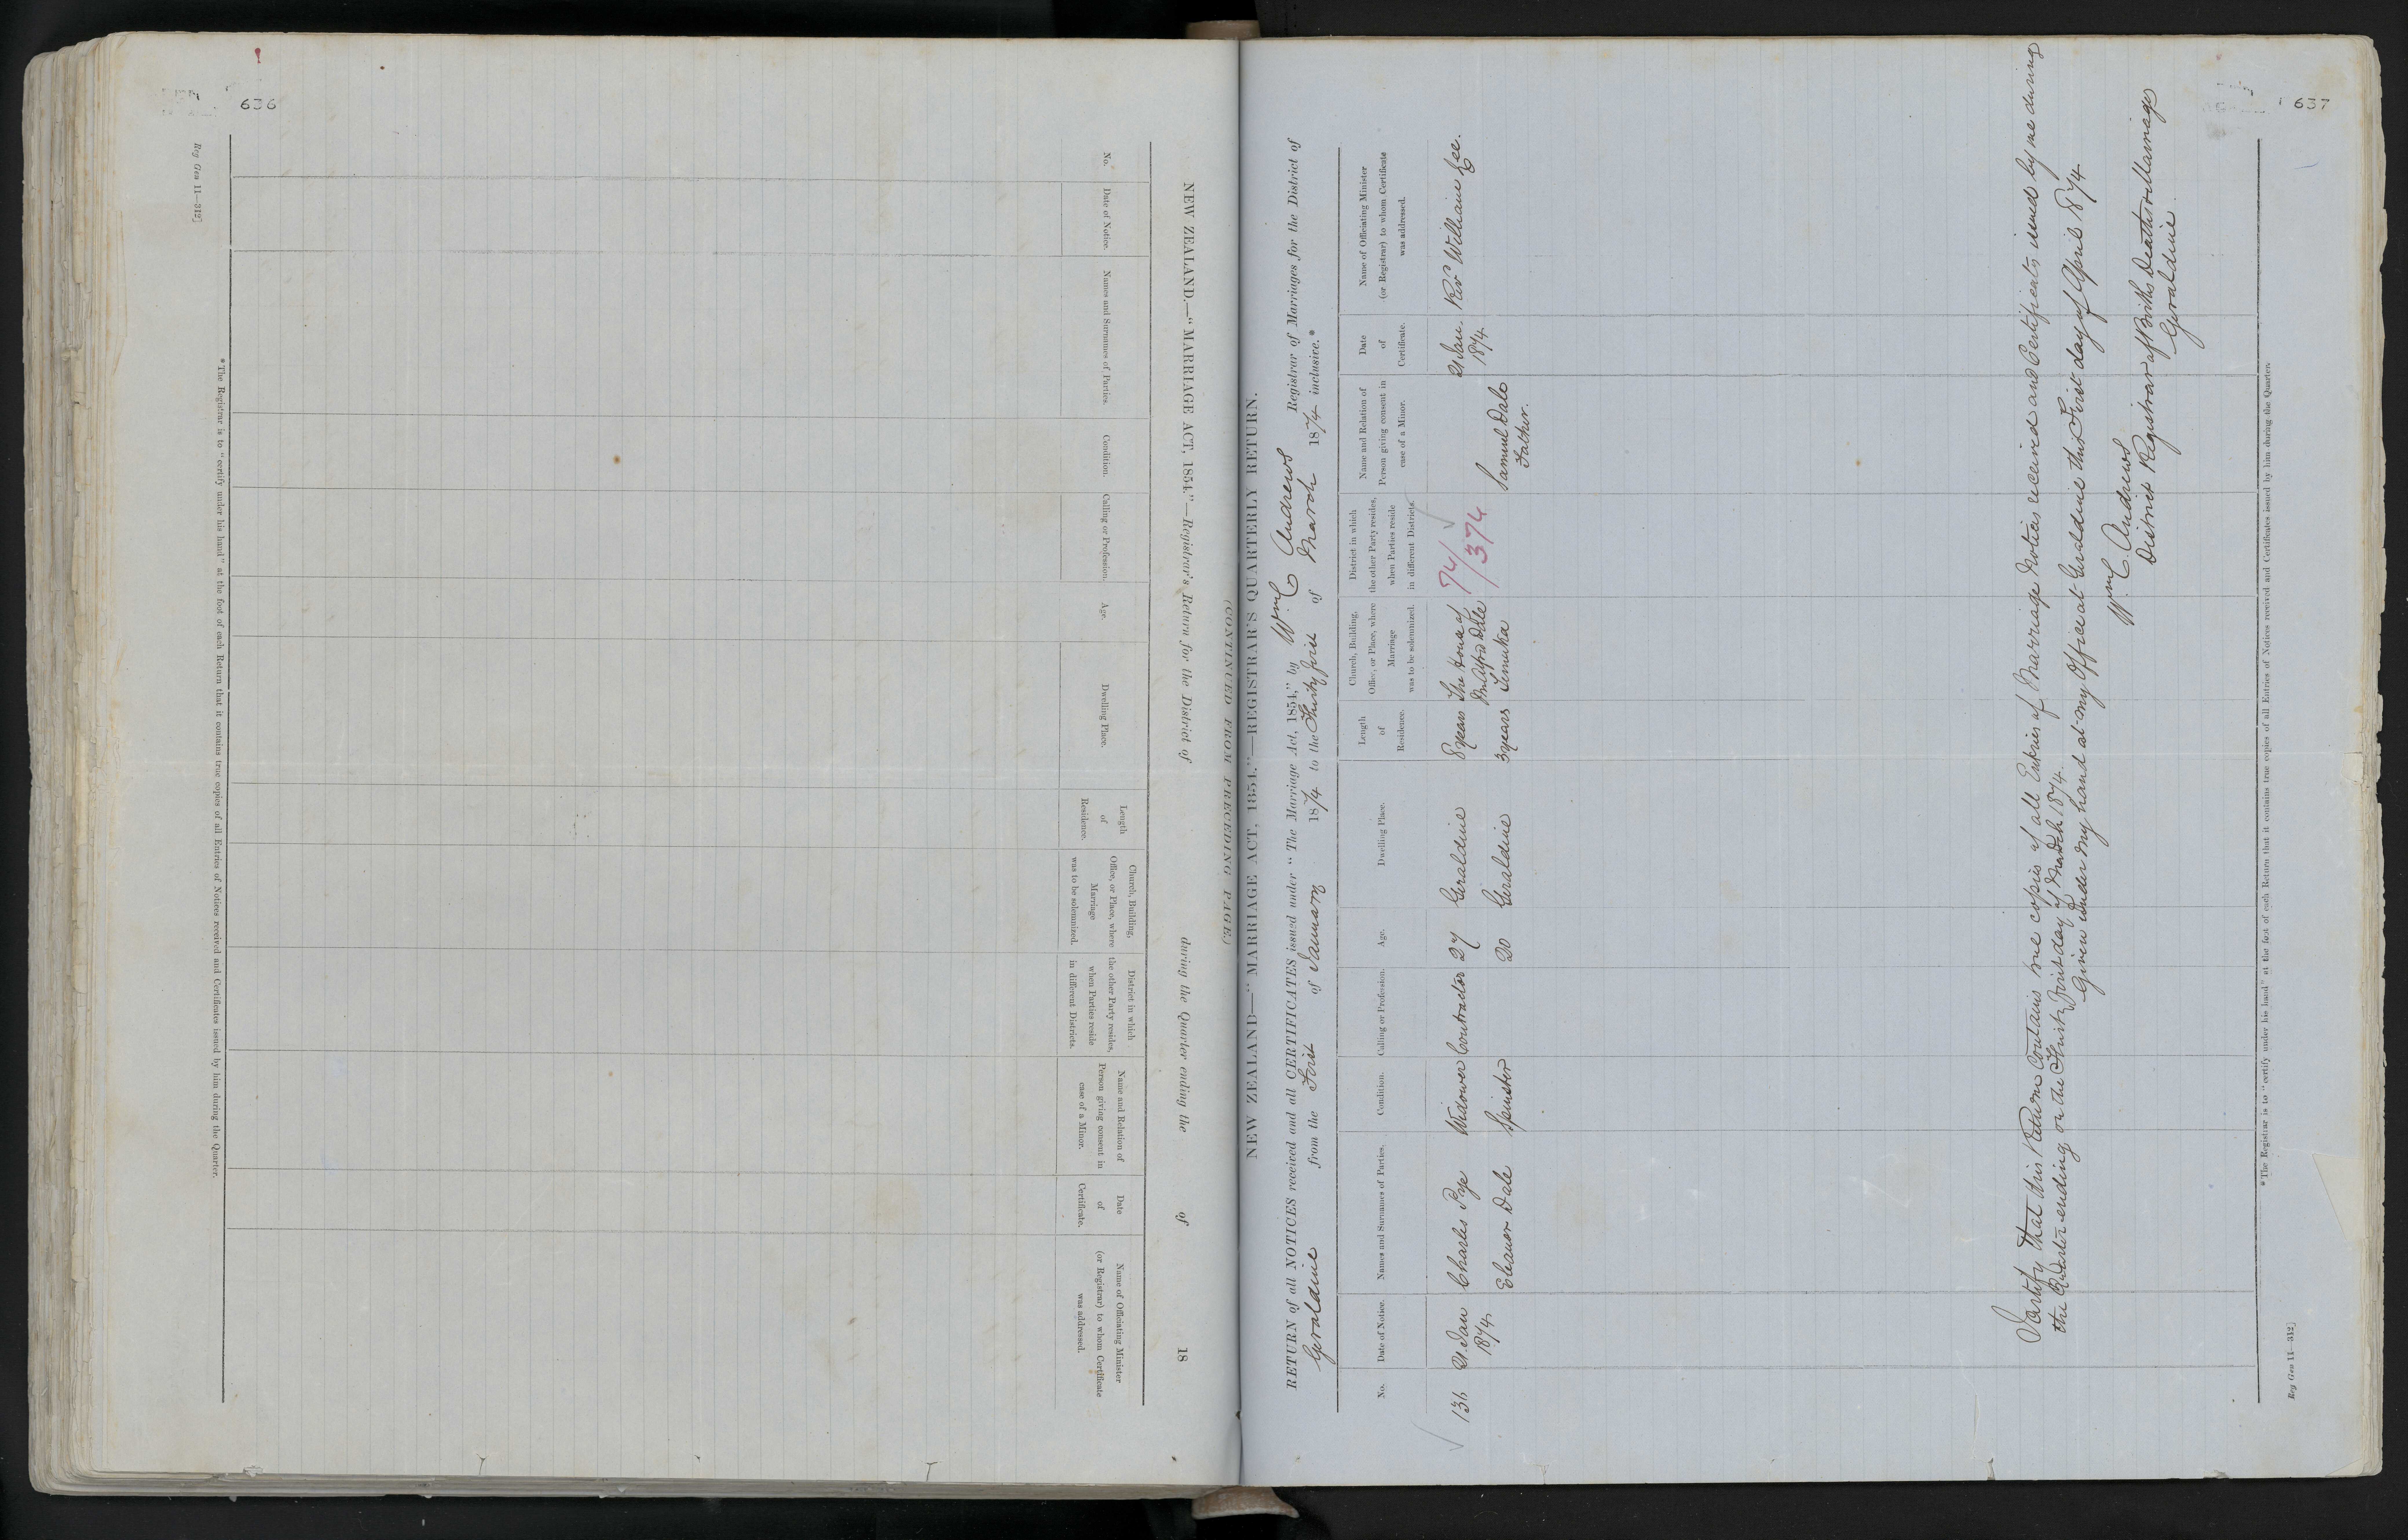 636
Reg Gen 11—312]
NEW ZEALAND.—"MARRIAGE ACT, 1854."—Registrar's Return for the District of during the Quarter ending the of 18
No.
Date of Notice.
Names and Surnames of Parties.
Condition.
Calling or Profession.
Age.
Dwelling Place.
Length
of
Residence.
Church, Building,
Office, or Place, where
Marriage
was to be solemnized.
District in which
the other Party resides,
when Parties reside
in different Districts.
Name and Relation of
Person giving consent in
case of a Minor.
Date
of
Certificate.
Name of Officiating Minister
(or Registrar) to whom Certificate
was addressed.
*The Registrar is to "certify under his hand" at the foot of each Return that it contains true copies of all Entries of Notices received and Certificates issued by him during the Quarter.
637
(CONTINUED FROM PRECEDING PAGE.)
NEW ZEALAND—"MARRIAGE ACT, 1854."—REGISTRAR'S QUARTERLY RETURN.
RETURN of all NOTICES received and all CERTIFICATES issued under "The Marriage Act, 1854," by Wm C Andrews Registrar of Marriages for the District of
Geraldine from the First of January 1874 to the Thirty first of March 1874 inclusive.*
No.
Date of Notice.
Names and Surnames of Parties.
Condition.
Calling or Profession.
Age.
Dwelling Place.
Length
of
Residence.
Church, Building,
Office, or Place, where
Marriage
was to be solemnized.
District in which
the other Party resides,
when Parties reside
in different Districts.
Name and Relation of
Person giving consent in
case of a Minor.
Date
of
Certificate.
Name of Officiating Minister
(or Registrar) to whom Certificate
was addressed.
136 21 Jan Charles Pye Widower Contractor 27 Geraldine 8 years The House of 74/ 21 Jan. Rev William Gee.
1874 Mr Alfred Dale 374 1874
Eleanor Dale Spinster 20 Geraldine 3 years Temuka Samuel Dale
Father.
I certify that this Return contains true copies of all Entries of Marriage Notices received and Certificates issued by me during
the Quarter ending on the Thirty First day of March 1874.
Given under my hand at my Office at Geraldine this First day of April 1874
Wm C. Andrews
District Registrar of Births Deaths & Marriages
Geraldine
*The Registrar is to "certify under his hand" at the foot of each Return that it contains true copies of all Entries of Notices received and Certificates issued by him during the Quarter.
Reg Gen 11—312]